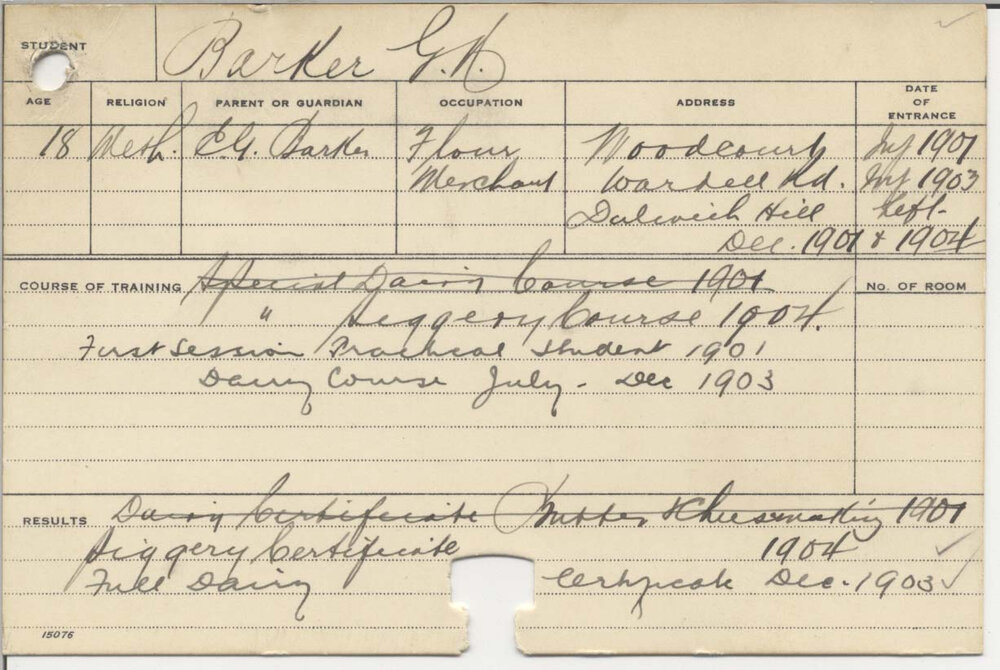 STUDENT Barker G.H.
AGE RELIGION PARENT OR GUARDIAN OCCUPATION ADDRESS DATE OF ENTRANCE
18 Meth. E.G. Barker Flour Woodcourt Jy 1901
Merchant Wardell Rd. 1903
Dulwich Hill Left-
Dec. 1901 & 1904
COURSE OF TRAINING Special Dairy Course 1901 No. OF ROOM
" Piggery Course 1904.
First Session Practical Student 1901
Dairy Course July - Dec 1903
RESULTS Dairy Certificate Butter & Cheesemaking 1901
Piggery Certificate 1904
Full Dairy Certificate Dec. 1903
15076